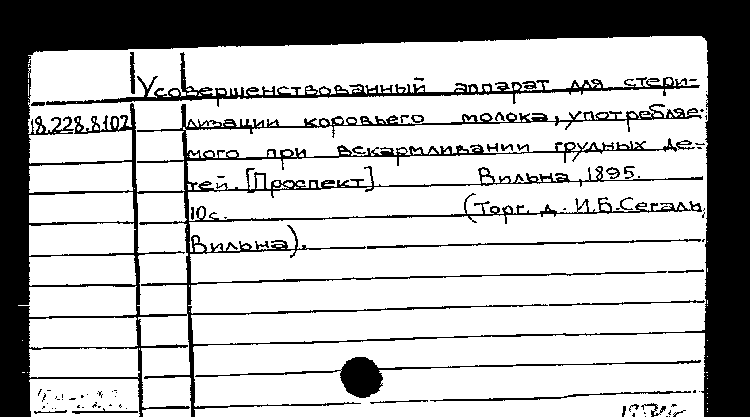 Усовершенствованный аппарат для стери-
18.228.8102 лизации коровьего молока, употребляе-
мого при вскармливании грудных де-
тей. [Проспект]. Вильна, 1895.
10с. (Торг. д. И.Б.Сегаль,
Вильна).